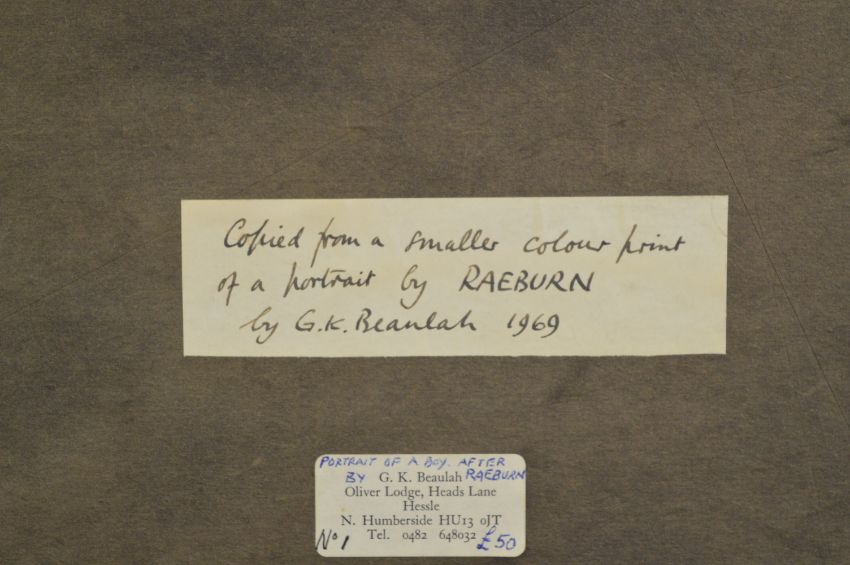 Copied from a smaller colour print
of a portrait by RAEBURN
by G.K. Beaulah 1969
PORTRAIT OF A BOY. AFTER
BY G. K. Beaulah RAEBURN
Oliver Lodge, Heads Lane
Hessle
N. Humberside HU13 0JT
No 1 Tel. 0482 648032 £50